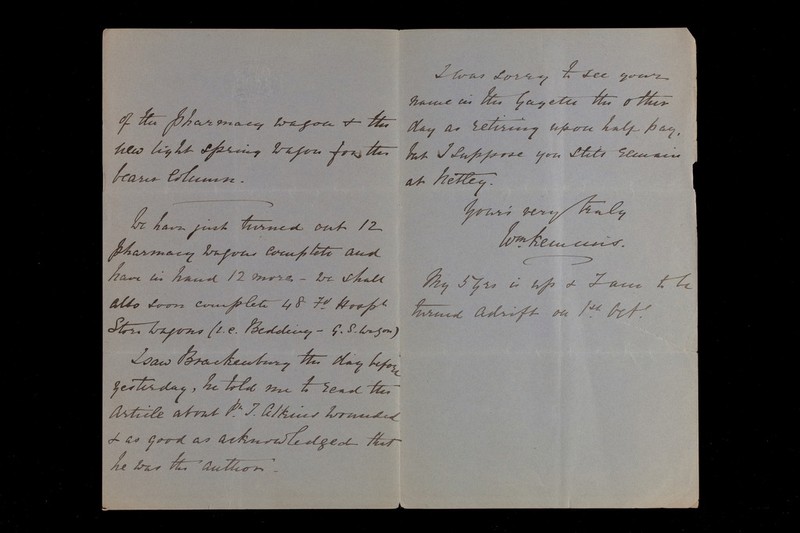 of the pharmacy wagon & the
new light spring wagon for the
bearer column.
We have just turned out 12
pharmacy wagons complete and
have in hand 12 more - we shall
also soon complete 48 Fd Hospl
Store wagons (i.e. Bedding - G.S. wagon)
I saw Brackenbury the day before
yesterday, he told me to read the
article about Pte T. Atkins wounded
& as good as acknowledged that
he was the author.
I was sorry to see your
name in the Gazette the other
day as retiring upon half pay,
but I suppose you still remain
at Netley.
Yours very truly
Wm Kemmis.
My 5 yrs is up & I am to be
turned adrift on 1st Oct!